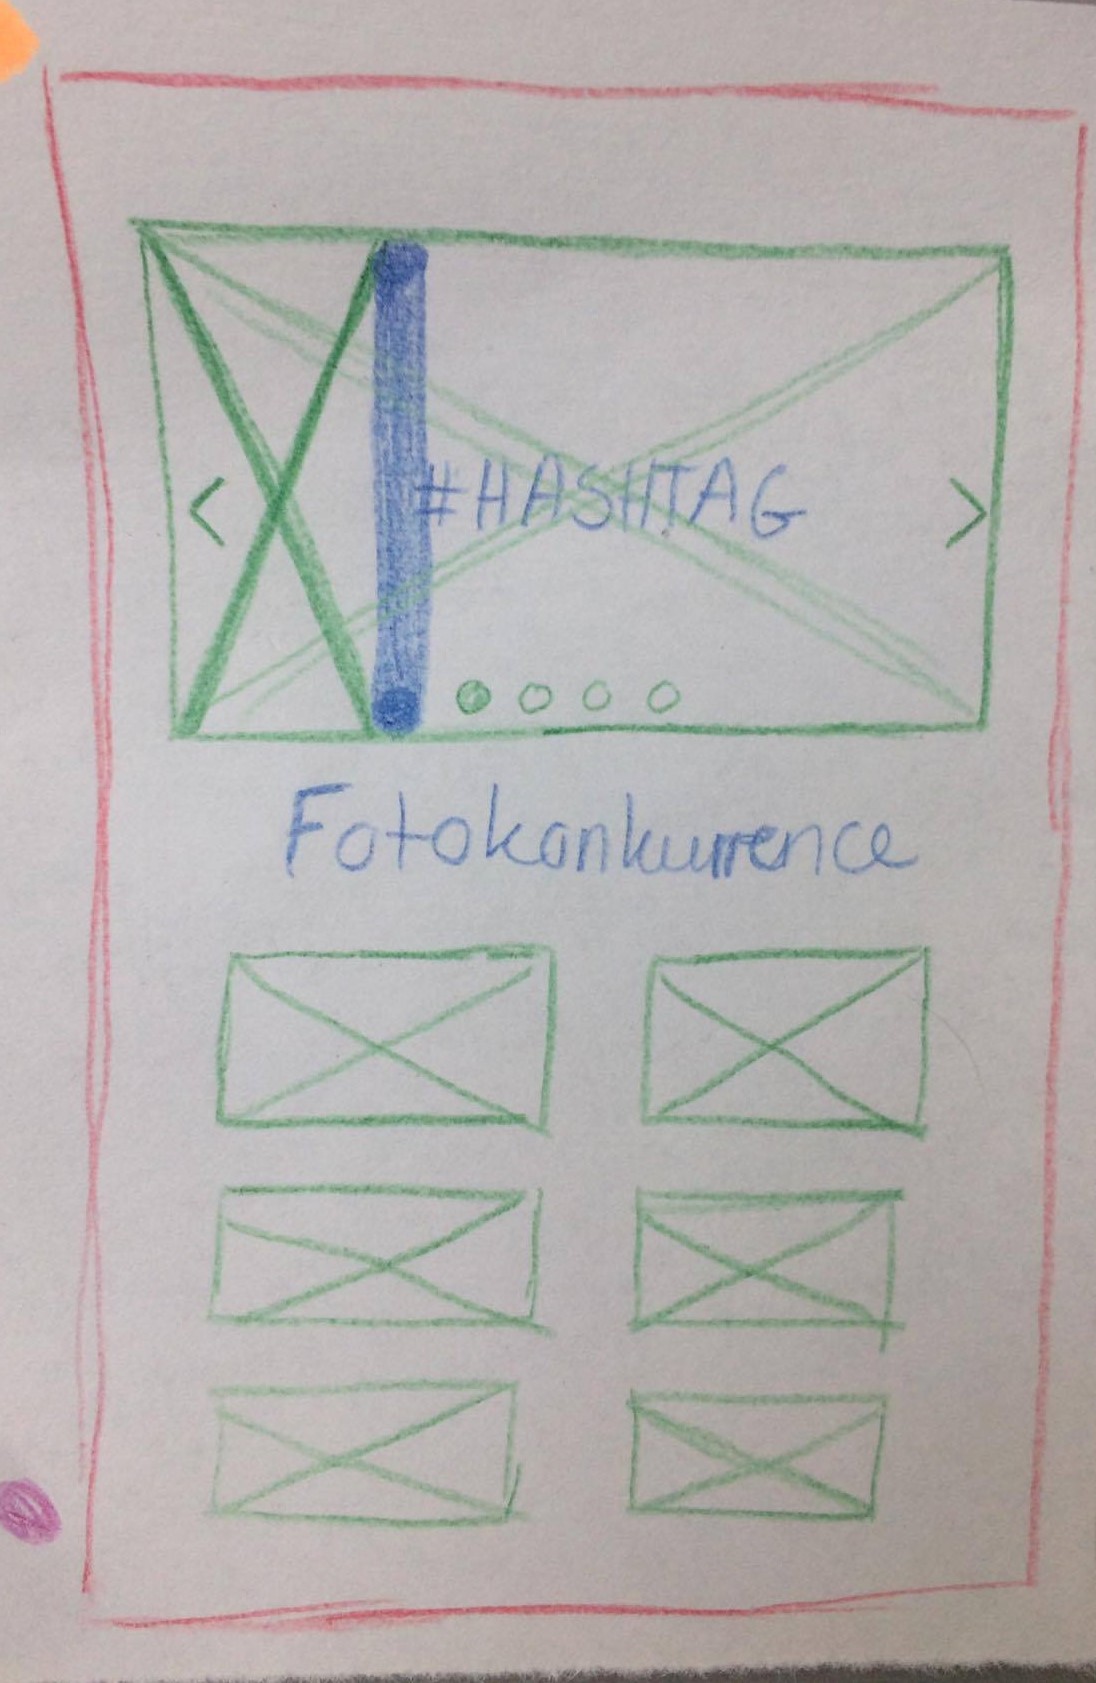 #HASHTAG
Fotokonkurrence